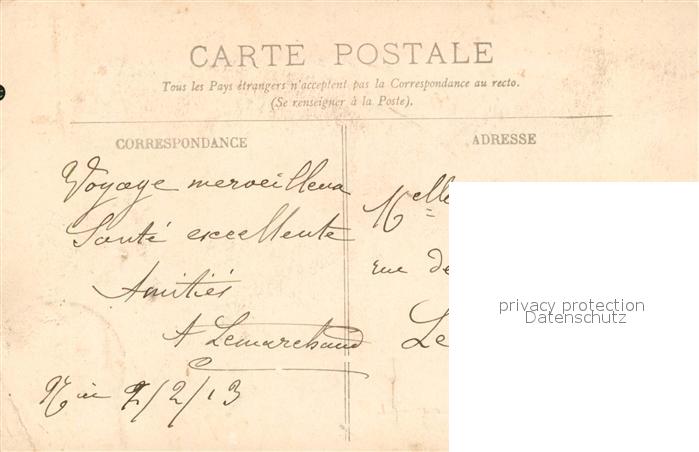 CARTE POSTALE
Tous les Pays étrangers n'acceptent pas la Correspondance au recto.
(Se renseigner à la Poste).
CORRESPONDANCE
ADRESSE
Voyage merveilleux
Santé excellente
Amitiés
A Lemarchand
2/2/13
Melle
rue de
Le
privacy protection
Datenschutz